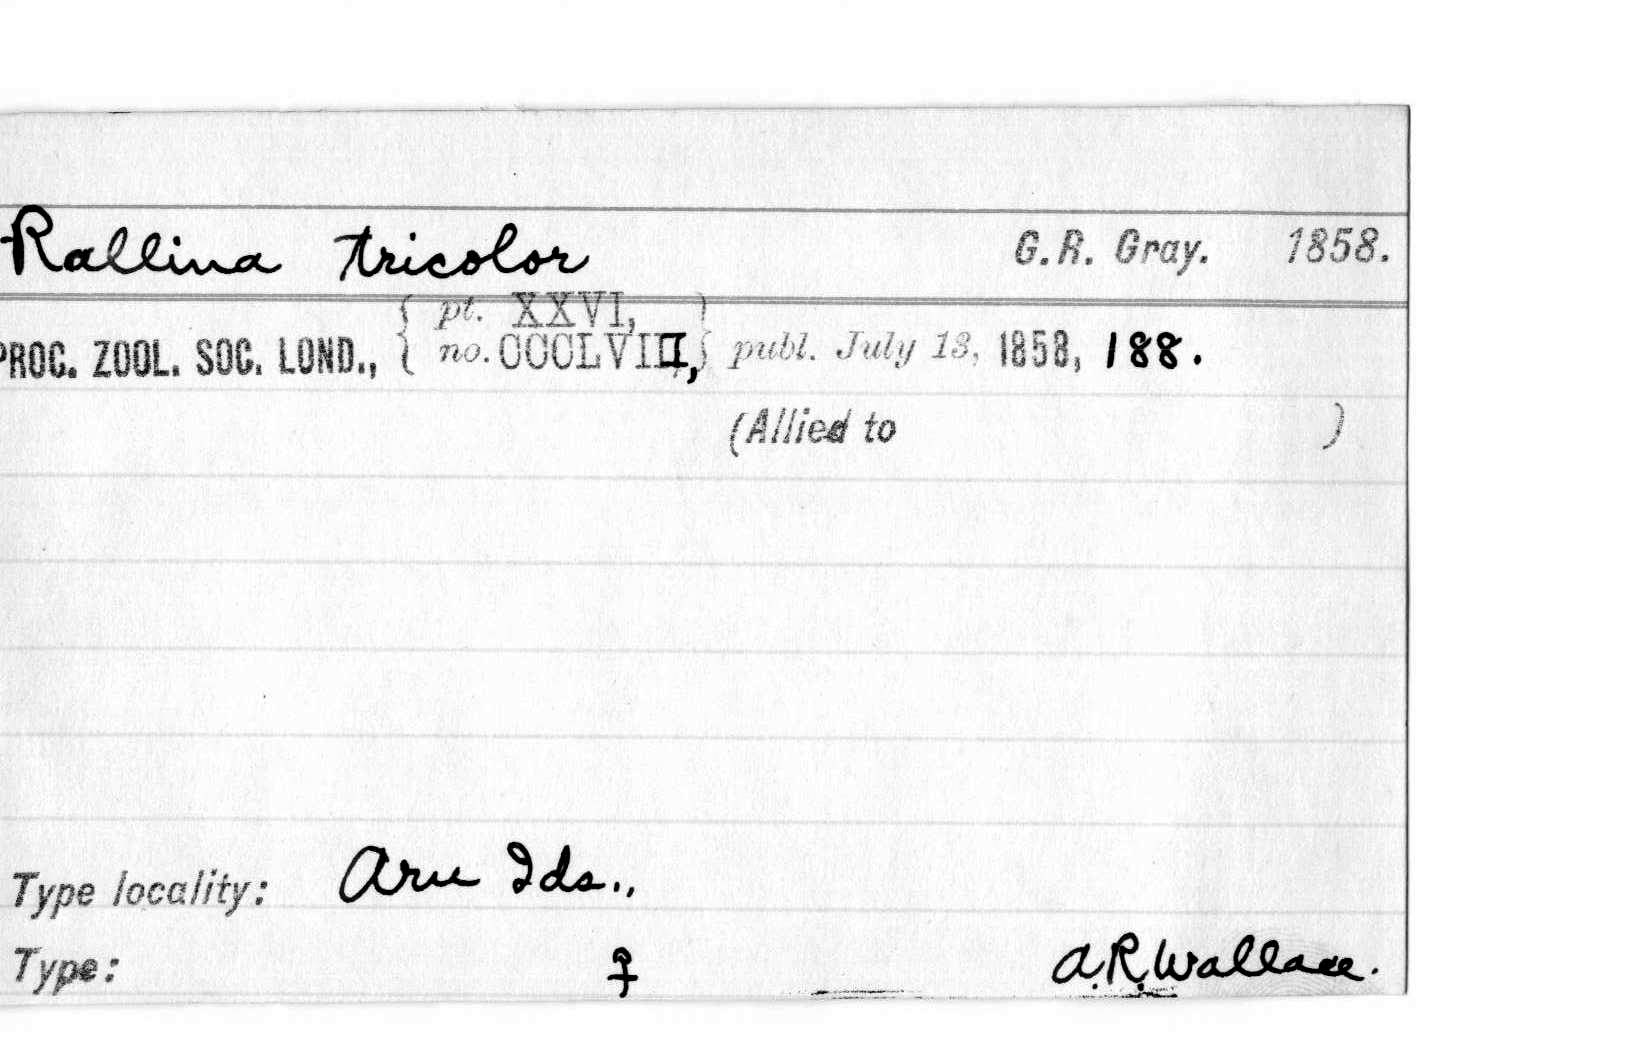 Rallina tricolor G.R. Gray. 1858.
PROC. ZOOL. SOC. LOND., { pt. XXVI, no. CCCLVIII, } publ. July 13, 1858, 188.
(Allied to )
Type locality: Aru Ids.,
Type: ♀ A.R. Wallace.